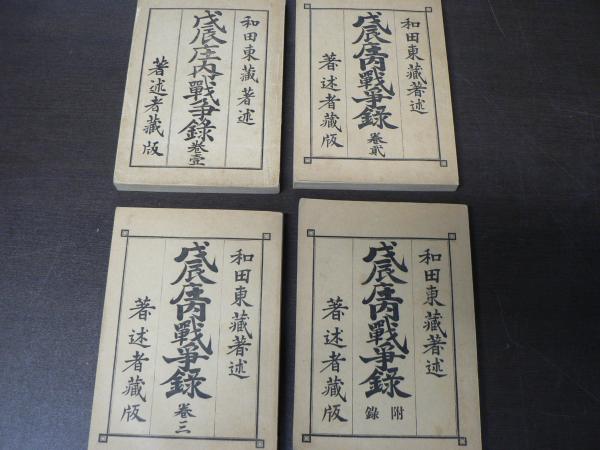 和田東藏著述
戊辰庄内戰爭錄
卷壹
著述者藏版
和田東藏著述
戊辰庄内戰爭錄
卷貳
著述者藏版
和田東藏著述
戊辰庄内戰爭錄
卷三
著述者藏版
和田東藏著述
戊辰庄内戰爭錄
附錄
著述者藏版